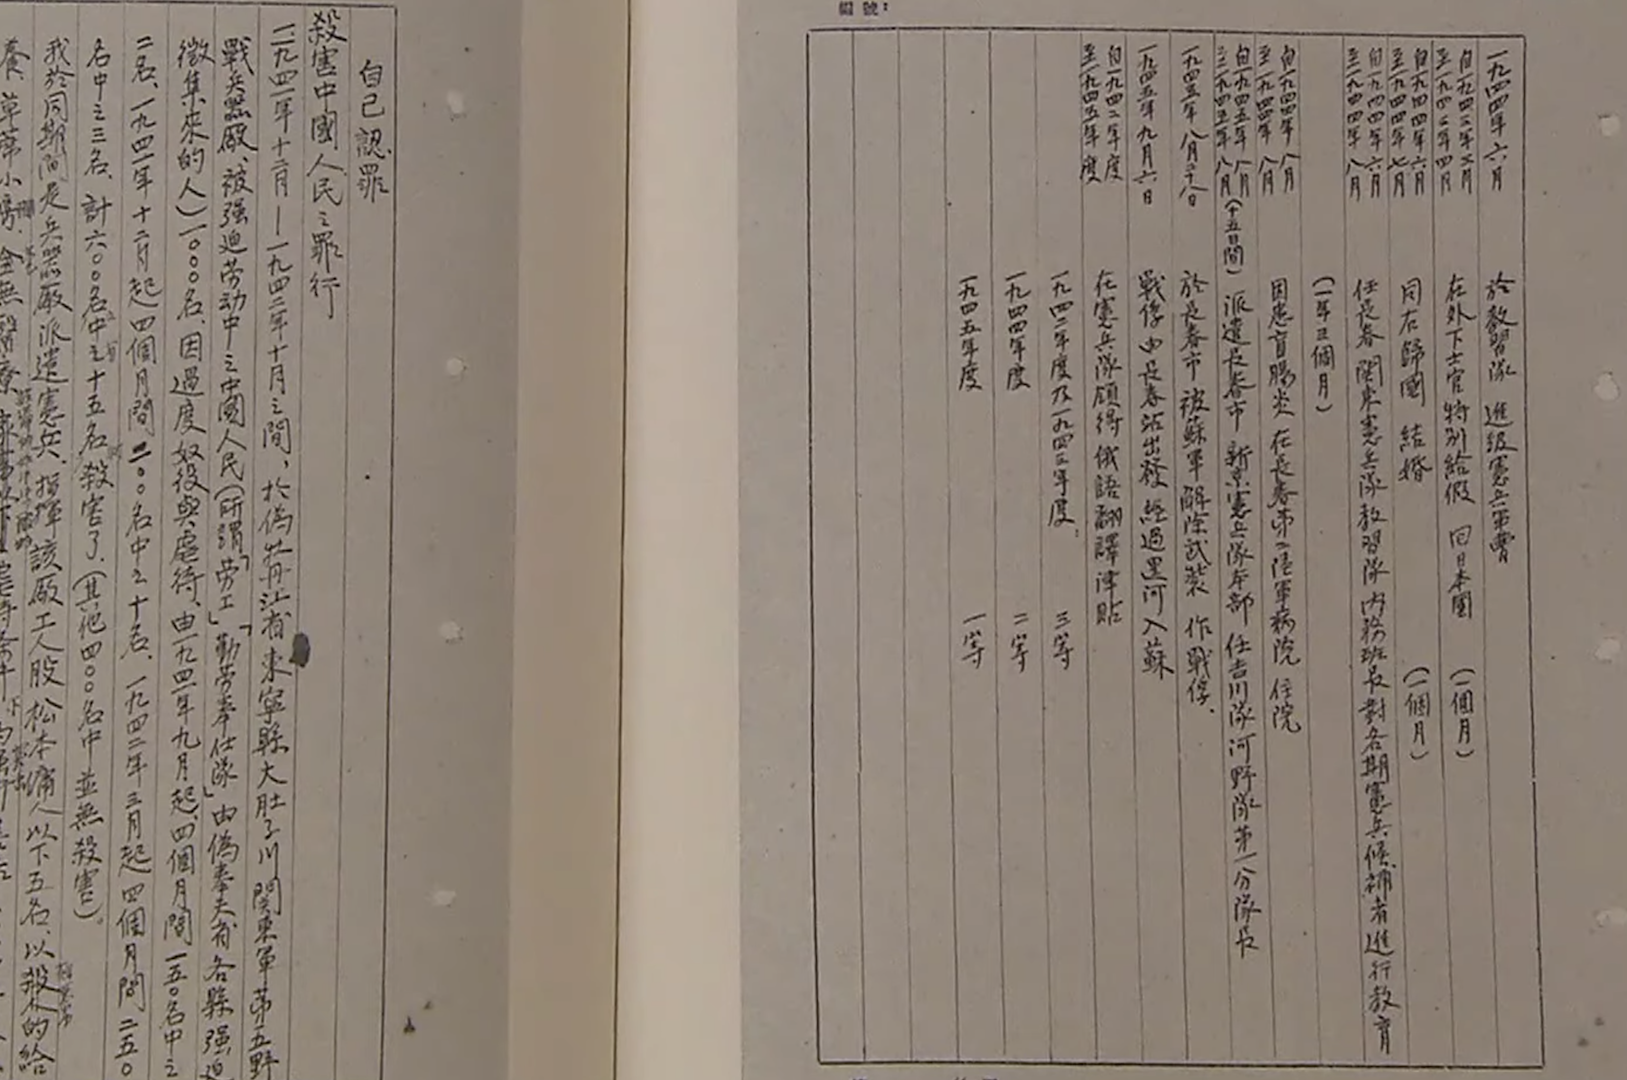 編號：
一九四四年六月 於教習隊 進級憲兵軍曹
自一九四三年三月
至一九四三年四月 在外下士官特別給假 回日本國 （一個月）
自一九四四年六月
至一九四四年七月 同右歸國 結婚 （一個月）
自一九四四年六月
至一九四四年八月 任長春関東憲兵隊教習隊內務班長對各期憲兵候補者進行教育
（一年三個月）
自一九四四年八月
至一九四四年八月 因患盲腸炎 在長春第二陸軍病院 住院
自一九四五年八月
至一九四五年八月（十五日間） 派遣長春市 新京憲兵隊本部 任吉川隊河野隊第一分隊長
一九四五年八月十八日 於長春市 被蘇軍解除武裝 作戰俘.
一九四五年九月六日 戰俘由長春站出發 經過黑河入蘇
自一九四二年度
至一九四五年度 在憲兵隊領得俄語翻譯津貼
一九四二年度及一九四三年度 三等
一九四四年度 二等
一九四五年度 一等
自己認罪
殺害中國人民之罪行
一九四一年十二月—一九四二年十月之間、於偽牡丹江省東寧縣大肚子川関東軍第五野
戰兵器廠、被强迫劳动中之中國人民（所謂「劳工」「勤劳奉仕隊」由偽奉天省各縣强迫
徵集來的人）一〇〇〇名、因過度奴役與虐待、由一九四一年九月起、四個月間一五〇名中之
二名、一九四一年十二月起四個月間二〇〇名中之十名、一九四二年三月起四個月間二五〇
名中之三名、計六〇〇名中之十五名殺害了、（其他四〇〇名中並無殺害）。
我於同期間是兵器廠派遣憲兵、指揮該廠工人股松本傭人以下五名、以殺人的給
養、草蓆小、全無醫療